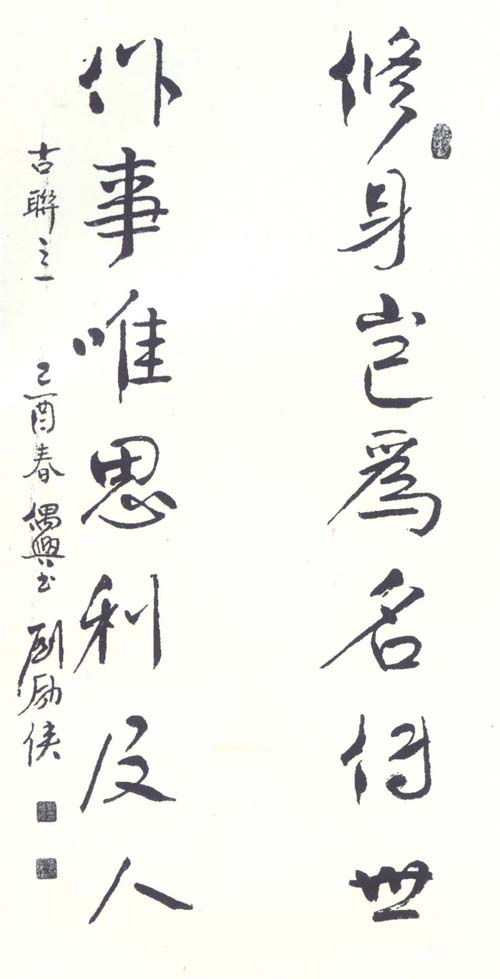 修身豈爲名傳世
作事唯思利及人
古聯之一 乙酉春 偶興书 劉励侠